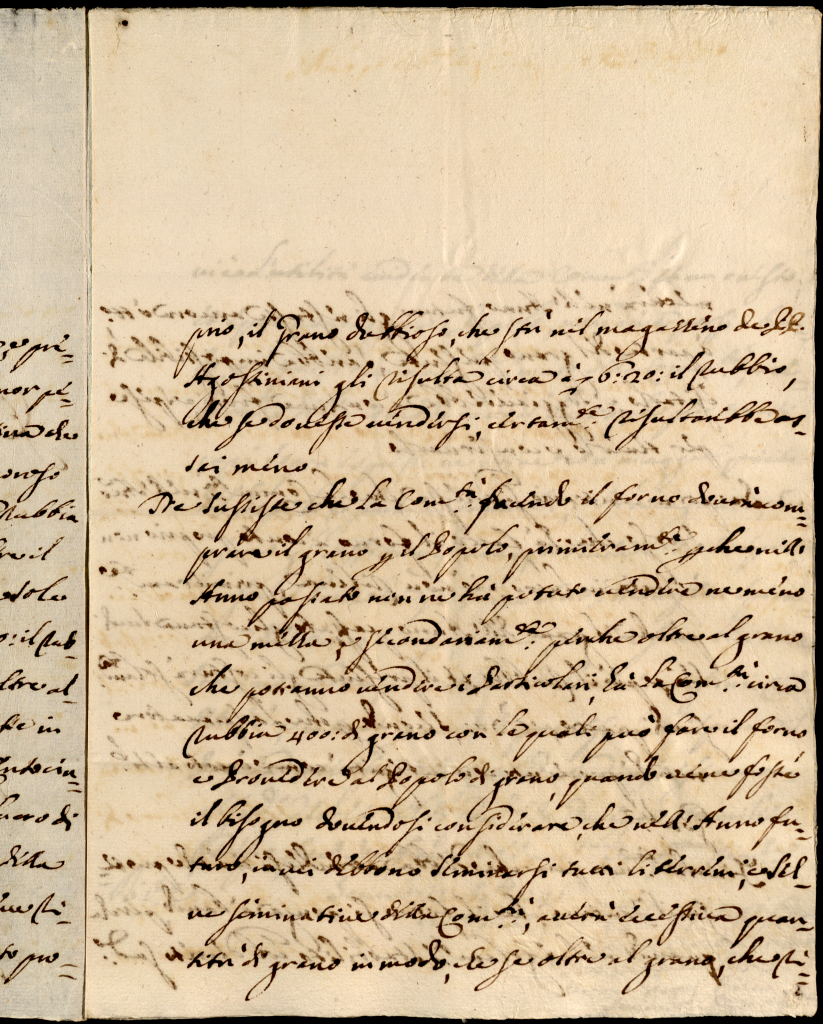 prio, il Grano dubbioso, che stà nel magazzino de PP.
Agostiniani gli risulta circa à 6:20: il rubbio,
che se dovesse vendersi, certam.te risultarebbe as-
sai meno.
Ne sussiste che la Com.tà facendo il forno dovrà com-
prare il grano p il Popolo, primieram.te pche nell'
Anno passato non ne hà potuto vendere ne meno
una mella, e secondariam.te perche oltre al grano
che potranno vendere i Particolari, hà la Com.tà circa
rubbia 400: di grano con le quali può fare il forno
e Provedere al Popolo di grano, quando ve ne fosse
il bisogno dovendosi considerare, che nell' Anno fu-
turo, in cui debbono seminarsi tutti li terreni, e Sel-
ve seminative della Com.tà, avrà eccessiva quan-
tità di grano in modo, che se oltre al grano, che ri-
e pri-
nor pi-
che
oroso
Rubbia
re il
sole
o: il rub-
ltre al-
te in
di
della
to pro-